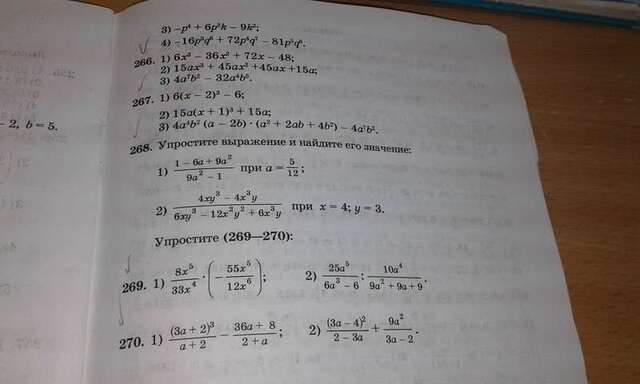 3) –p⁴ + 6p²k – 9k²;
4) –16p³q⁸ + 72p⁴q⁷ – 81p⁵q⁶.
266. 1) 6x³ – 36x² + 72x – 48;
2) 15ax³ + 45ax² +45ax +15a;
3) 4a⁷b² – 32a⁴b⁵.
267. 1) 6(x – 2)³ – 6;
2) 15a(x + 1)³ + 15a;
3) 4a⁴b² (a – 2b) · (a² + 2ab + 4b²) – 4a⁷b².
– 2, b = 5.
268. Упростите выражение и найдите его значение:
1) (1 – 6a + 9a²)/(9a² – 1) при a = 5/12;
2) (4xy³ – 4x³y)/(6xy³ – 12x²y² + 6x³y) при x = 4; y = 3.
Упростите (269—270):
269. 1) 8x⁵/33x⁴ · (–55x⁵/12x⁶); 2) 25a⁵/(6a³ – 6) : 10a⁴/(9a² + 9a + 9).
270. 1) (3a + 2)³/(a + 2) – (36a + 8)/(2 + a); 2) (3a – 4)²/(2 – 3a) + 9a²/(3a – 2).